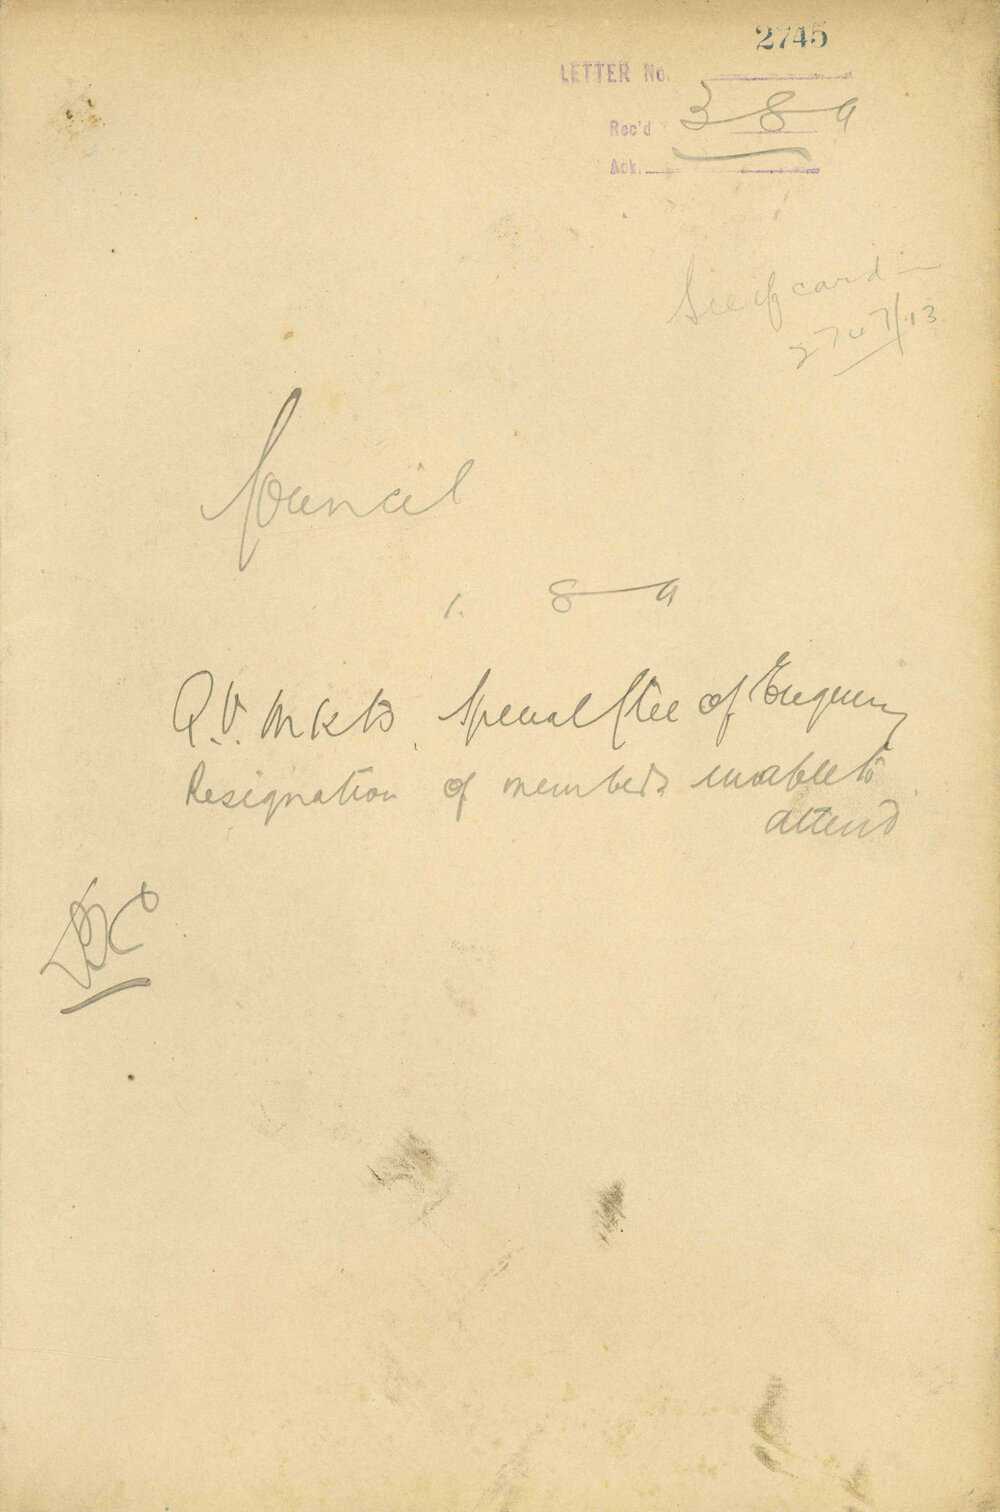 2745
LETTER No.
Rec'd 3 8 9
Ack.
See card
2707/13
Council
1. 8 9
Q.V. Mkts. Special Ctee of Enquiry
Resignation of members unable to
attend